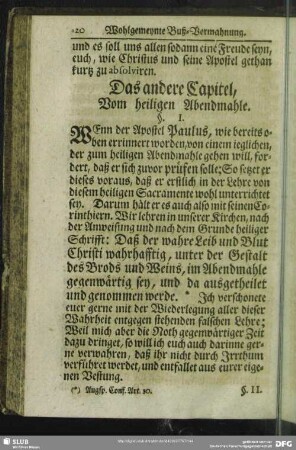 20 Wohlgemeynte Buß-Vermahnung.
und es soll uns allen sodann eine Freude seyn,
euch, wie Christus und seine Apostel gethan
kurtz zu absolviren.
Das andere Capitel,
Vom heiligen Abendmahle.
§. I.
WEnn der Apostel Paulus, wie bereits o-
ben errinnert worden, von einem ieglichen,
der zum heiligen Abendmahle gehen will, for-
dert, daß er sich zuvor prüfen solle: So setzet er
dieses voraus, daß er erstlich in der Lehre von
diesem heiligen Sacramente wohl unterrichtet
sey. Darum hält er es auch also mit seinen Co-
rinthiern. Wir lehren in unserer Kirchen, nach
der Anweisung und nach dem Grunde heiliger
Schrifft: Daß der wahre Leib und Blut
Christi wahrhafftig, unter der Gestalt
des Brods und Weins, im Abendmahle
gegenwärtig sey, und da ausgetheilet
und genommen werde. * Ich verschonete
euer gerne mit der Wiederlegung aller dieser
Wahrheit entgegen stehenden falschen Lehre;
Weil mich aber die Noth gegenwärtiger Zeit
dazu dringet, so will ich euch auch darinne ger-
ne verwahren, daß ihr nicht durch Irrthum
verführet werdet, und entfallet aus eurer eige-
nen Vestung.
(*) Augsp. Conf. Art. 10. §. II.
SLUB
Wir führen Wissen.
DFG